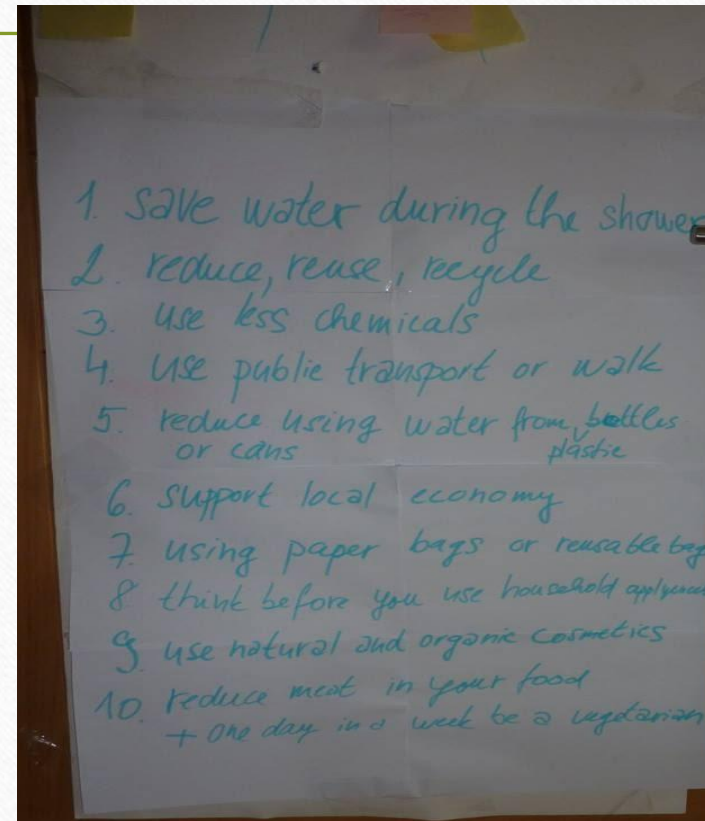 1. save water during the shower
2. reduce, reuse, recycle
3. use less chemicals
4. use public transport or walk
5. reduce using water from plastic bottles
or cans
6. support local economy
7. using paper bags or reusable bag
8 think before you use household
9. use natural and organic cosmetics
10. reduce meat in your food
+ one day in a week be a vegetarian